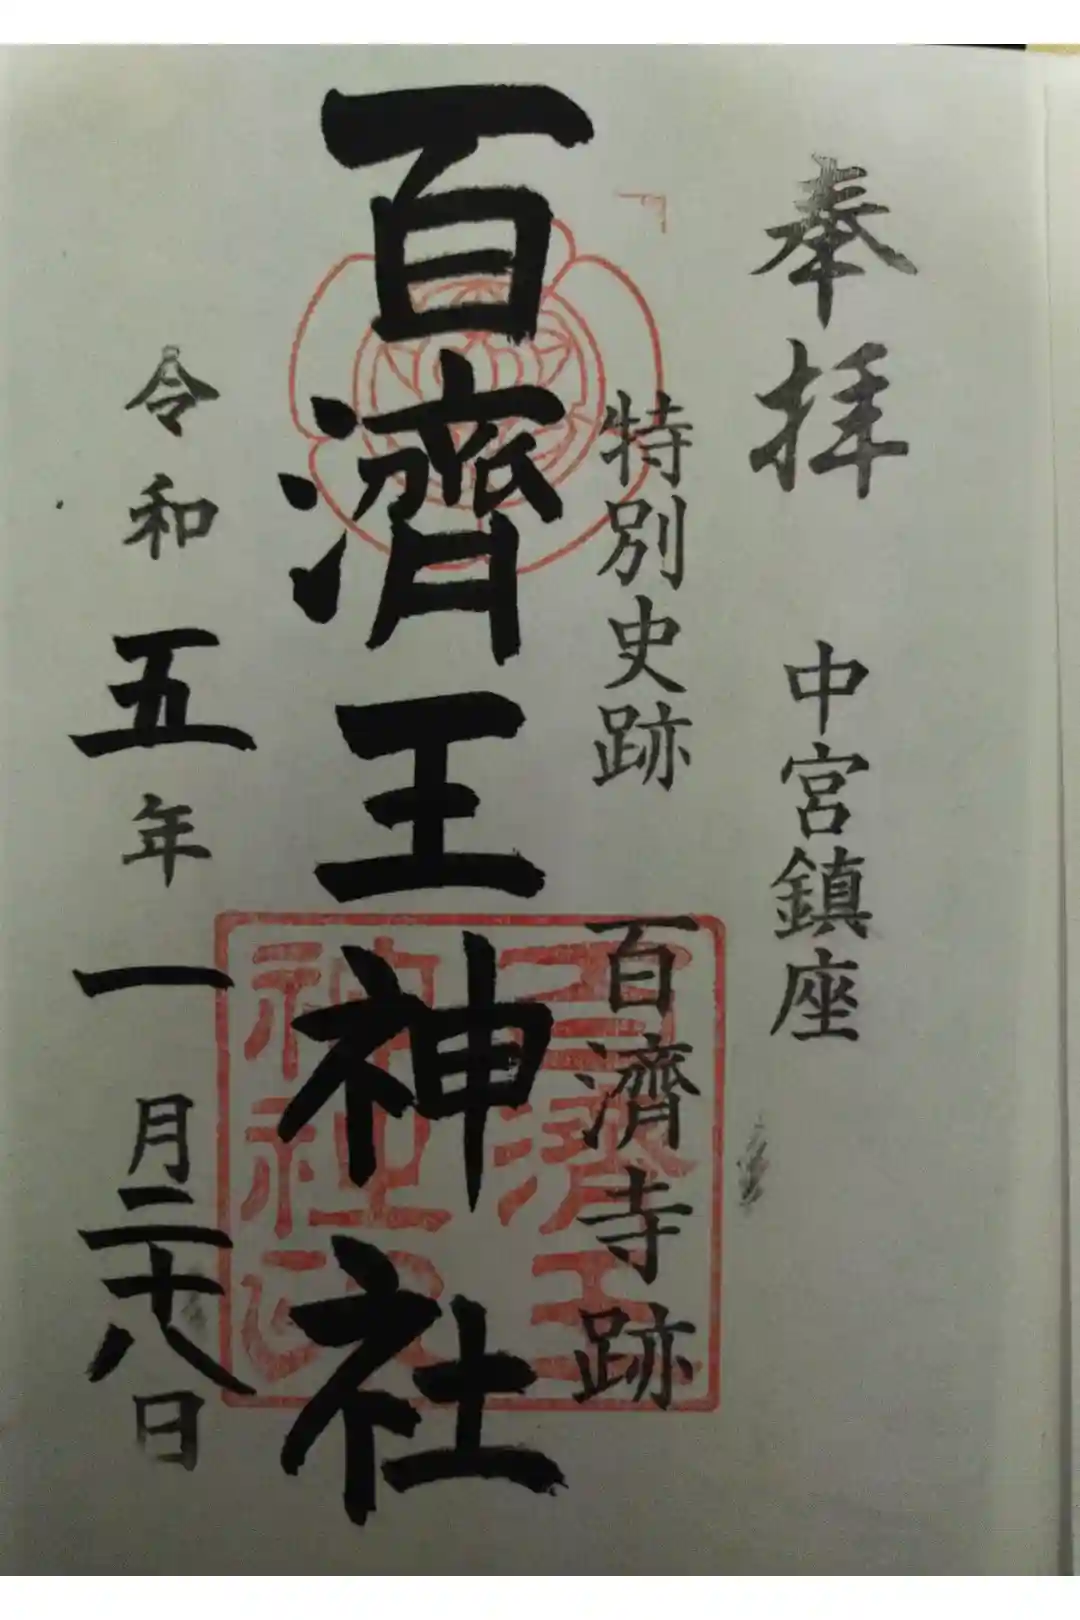 奉拝
中宮鎮座
特別史跡
百濟寺跡
百濟王神社
令和五年一月二十八日